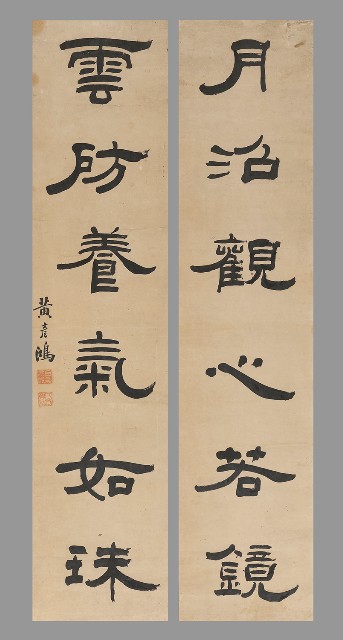 月沼觀心若鏡
雲房養氣如珠
黃彥鴻